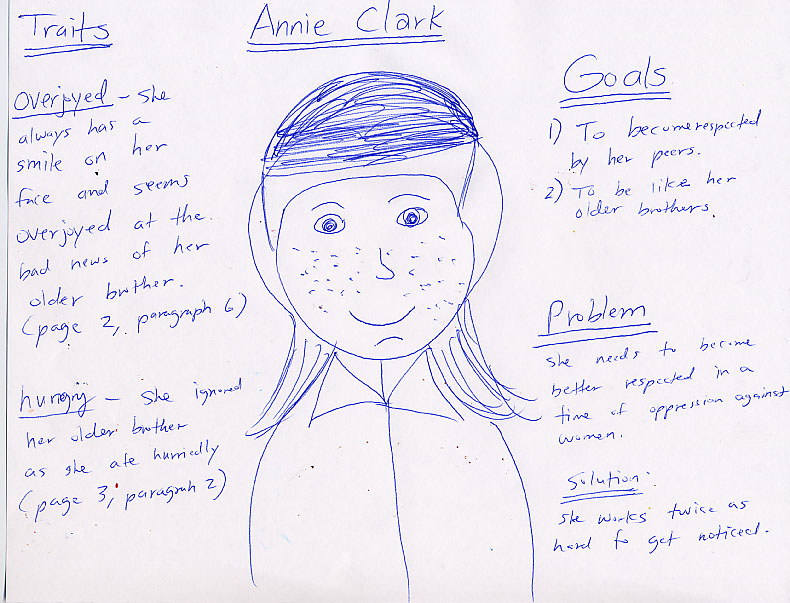 Annie Clark
Traits
Overjoyed - she
always has a
smile on her
face and seems
overjoyed at the
bad news of her
older brother.
(page 2, paragraph 6)
hungry - she ignored
her older brother
as she ate hurriedly
(page 3, paragraph 2)
Goals
1) To become respected
by her peers.
2) To be like her
older brothers.
Problem
she needs to become
better respected in a
time of oppression against
women.
Solution:
she works twice as
hard to get noticed.